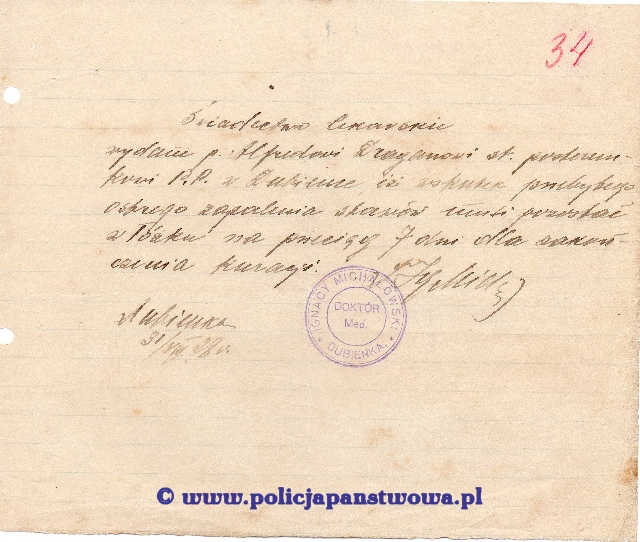 34
Świadectwo lekarskie
wydane p. Alfredowi Draganowi st. posterun-
kowi P.P. w Dubience, iż wskutek przebytego
ostrego zapalenia stawów musi pozostać
w łóżku na przeciąg 7 dni dla zakoń-
czenia kuracji.
IGNACY MICHAŁOWSKI
DOKTÓR
Med.
* DUBIENKA. *
Dubienka
© www.policjapanstwowa.pl